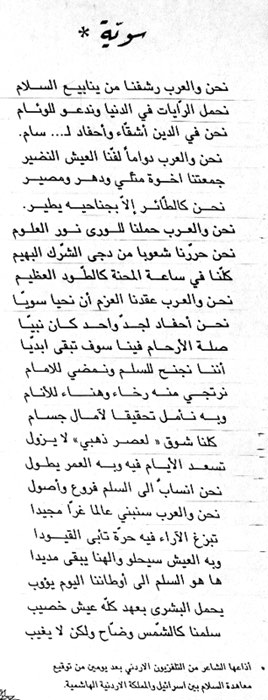 سويّة *
نحن والعرب رشفنا من ينابيع السلام
نحمل الرّايات في الدنيا وندعو للوئام
نحن في الدين أشقّاء وأحفاد لـ... سام.
نحن والعرب دواماً لفّنا العيش النضير
جمعتنا اخوة مثلى ودهر ومصير
نحن كالطّائر إلاّ بجناحيه يطير.
نحن والعرب حملنا للورى نور العلوم
نحن حررّنا شعوبا من دجى الشّرك البهيم
كلّنا في ساعة المحنة كالطّود العظيم
نحن والعرب عقدنا العزم أن نحيا سويّا
نحن أحفاد لجدّ واحد كان نبيّا
صلة الأرحام فينا سوف تبقى ابديّا
أننا نجنح للسلم ونمضي للامام
نرتجي منه رخاء وهناء للأنام
وبه نأمل تحقيقا لآمال جسام
كلنا شوق « لعصر ذهبي» لا يزول
تسعد الأيام فيه وبه العمر يطول
نحن انسابٌ الى السلم فروع وأصول
نحن والعرب سنبني عالما غرّا مجيدا
تبزغ الآراء فيه حرّة تأبى القيودا
وبه العيش سيحلو والهنا يبقى مديدا
ها هو السلم الى أوطاننا اليوم يؤوب
يحمل البشرى بعهد كلّه عيش خصيب
سلمنا كالشّمس وضّاح ولكن لا يغيب
* أذاعها الشاعر من التلفزيون الاردني بعد يومين من توقيع
معاهدة السلام بين اسرائيل والمملكة الاردنية الهاشمية.